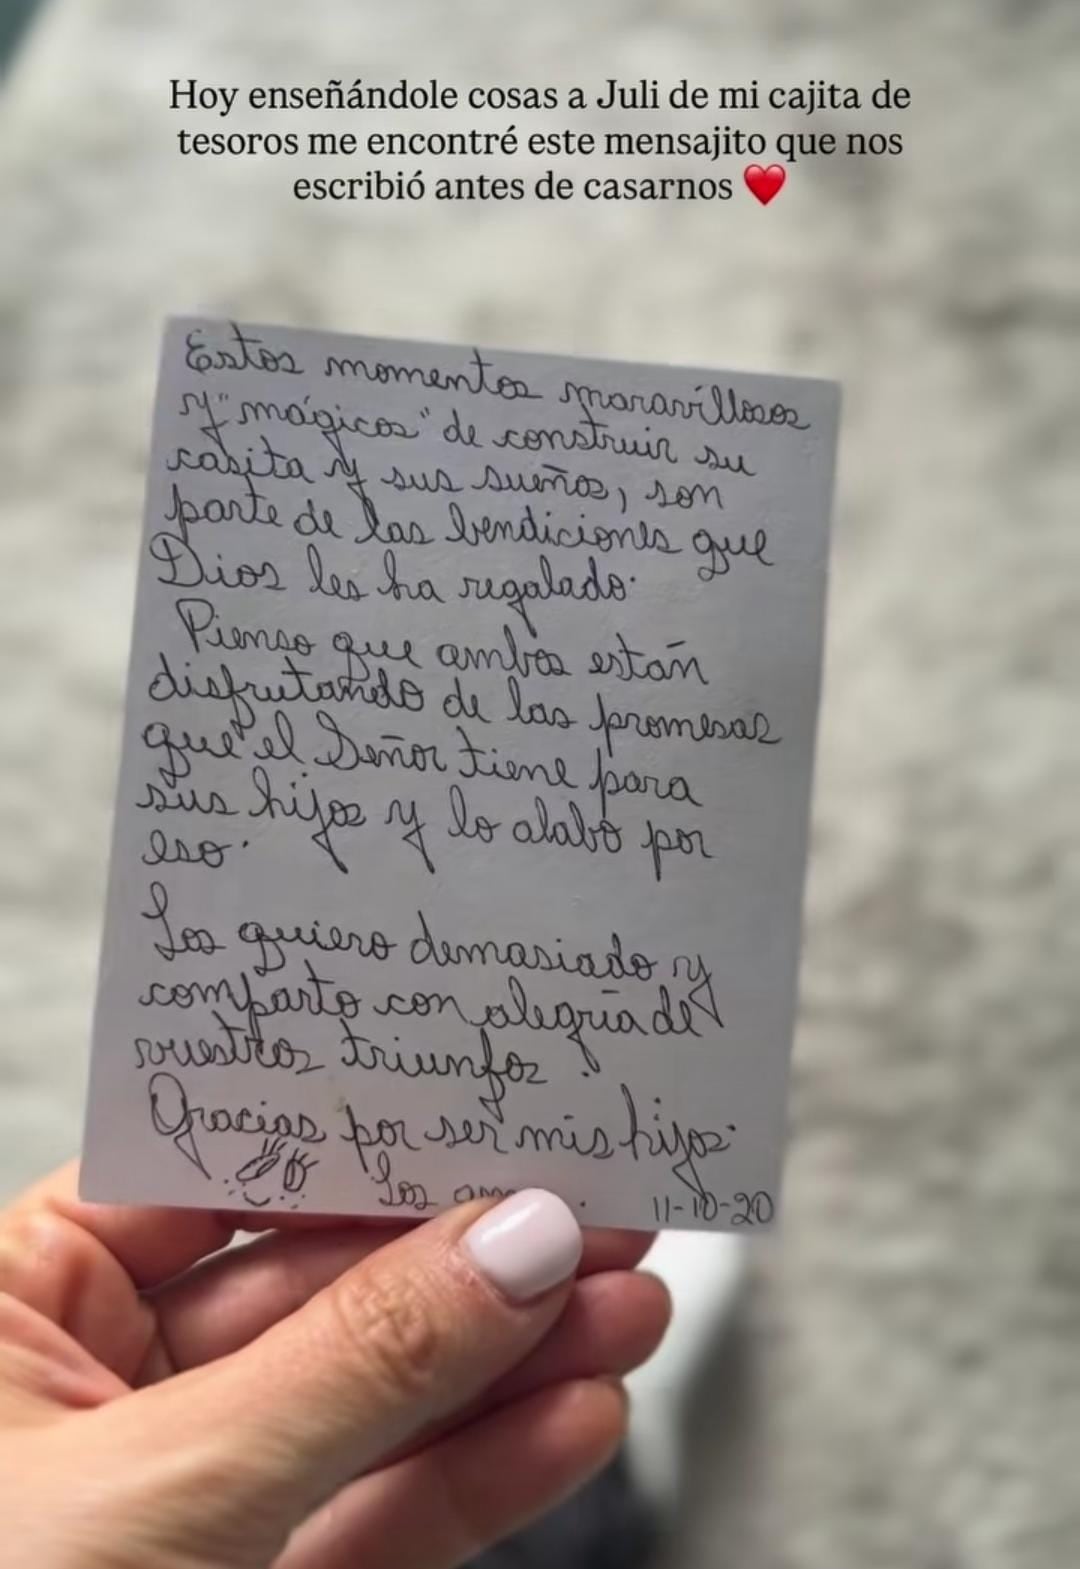 Hoy enseñándole cosas a Juli de mi cajita de
tesoros me encontré este mensajito que nos
escribió antes de casarnos ❤️
Estos momentos maravillosos
y "mágicos" de construir su
casita y sus sueños, son
parte de las bendiciones que
Dios les ha regalado.
Pienso que ambos están
disfrutando de las promesas
que el Señor tiene para
sus hijos y lo alabo por
eso.
Los quiero demasiado y
comparto con alegría de
vuestros triunfos.
Gracias por ser mis hijos.
Los
11-10-20